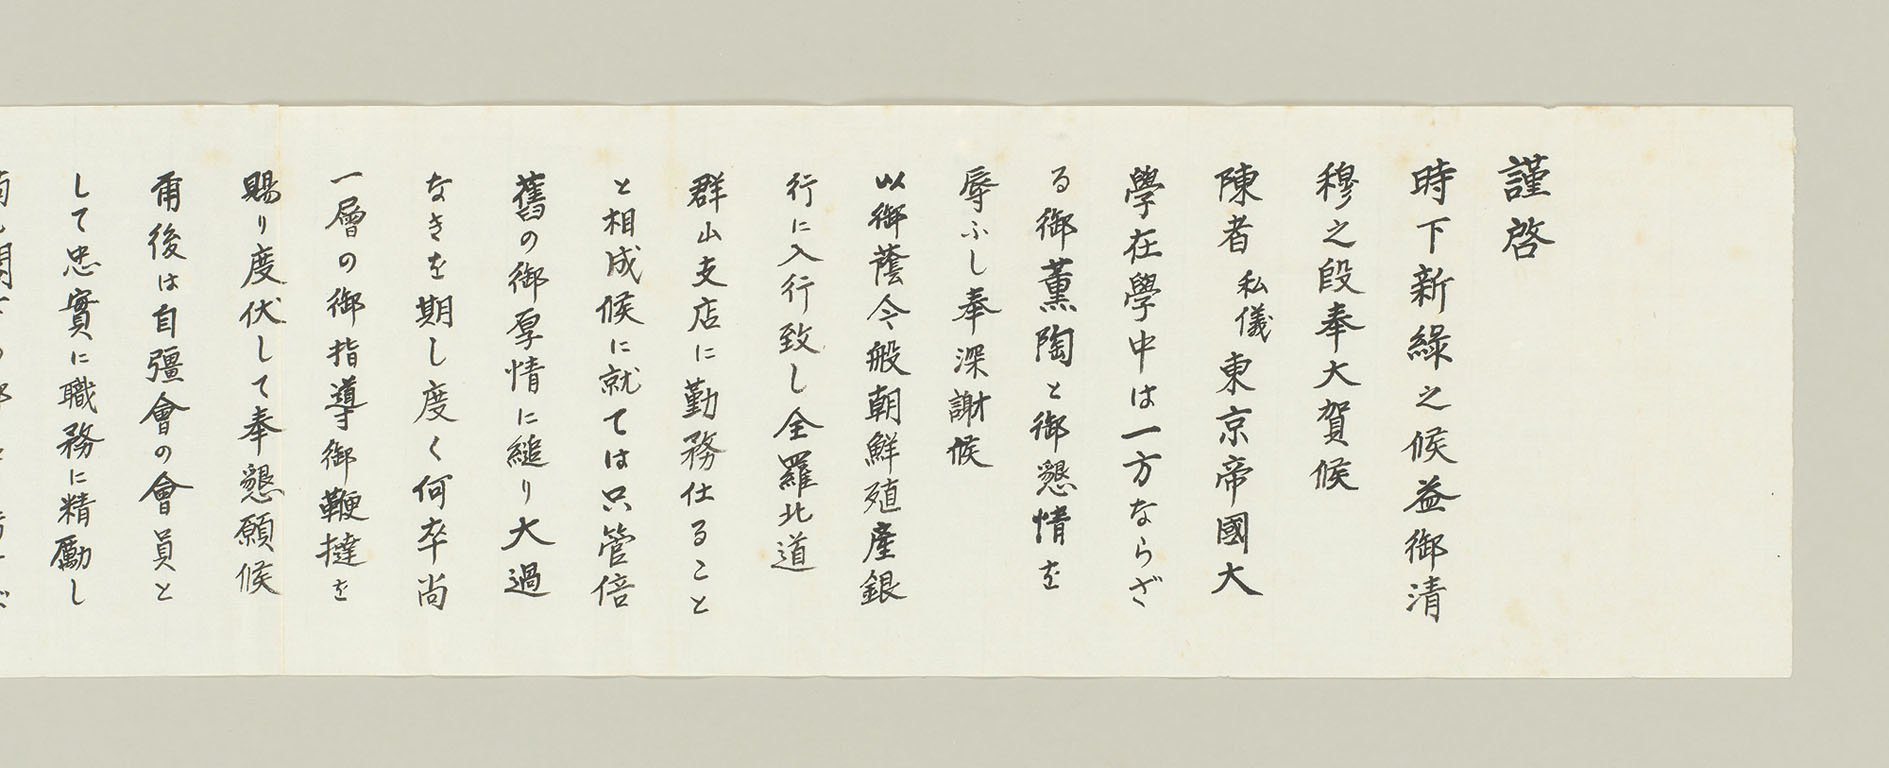 謹啓
時下新緑之候益御清
穆之段奉大賀候
陳者私儀東京帝國大
學在學中は一方ならざ
る御薫陶と御懇情を
辱ふし奉深謝候
以御蔭今般朝鮮殖産銀
行に入行致し全羅北道
群山支店に勤務仕ること
と相成候に就ては只管倍
舊の御厚情に縋り大過
なきを期し度く何卒尚
一層の御指導御鞭撻を
賜り度伏して奉懇願候
爾後は自彊會の會員と
して忠實に職務に精励し